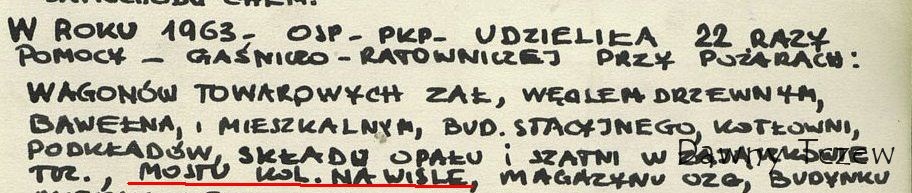 W ROKU 1963- OSP-PKP- UDZIELIŁA 22 RAZY
POMOCY - GAŚNICZO-RATOWNICZEJ PRZY POŻARACH:
WAGONÓW TOWAROWYCH ZAŁ, WĘGLEM DRZEWNYM,
BAWEŁNĄ, I MIESZKALNYM, BUD. STACYJNEGO, KOTŁOWNI,
PODKŁADÓW, SKŁADU OPAŁU I SZATNI W
TCZ., MOSTU KOL. NA WIŚLE, MAGAZYNU OZG, BUDYNKU
Dawny Tczew